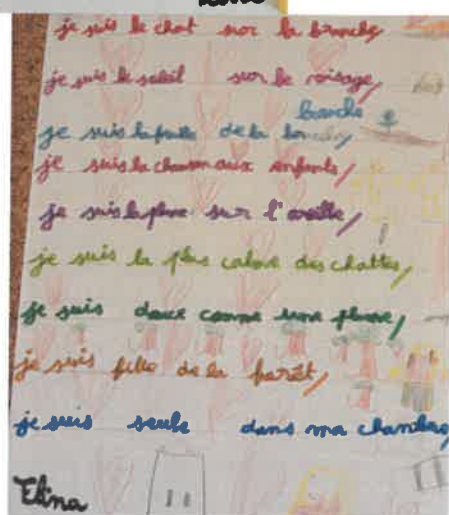 je suis le chat sur la branche
je suis le soleil sur le visage,
branche
je suis la feuille de la
je suis la chanson aux enfants,
je suis la plume sur l'oreille,
je suis la plus calme des chattes,
je suis douce comme une plume,
je suis fille de la forêt,
je suis seule dans ma chambre,
Elina